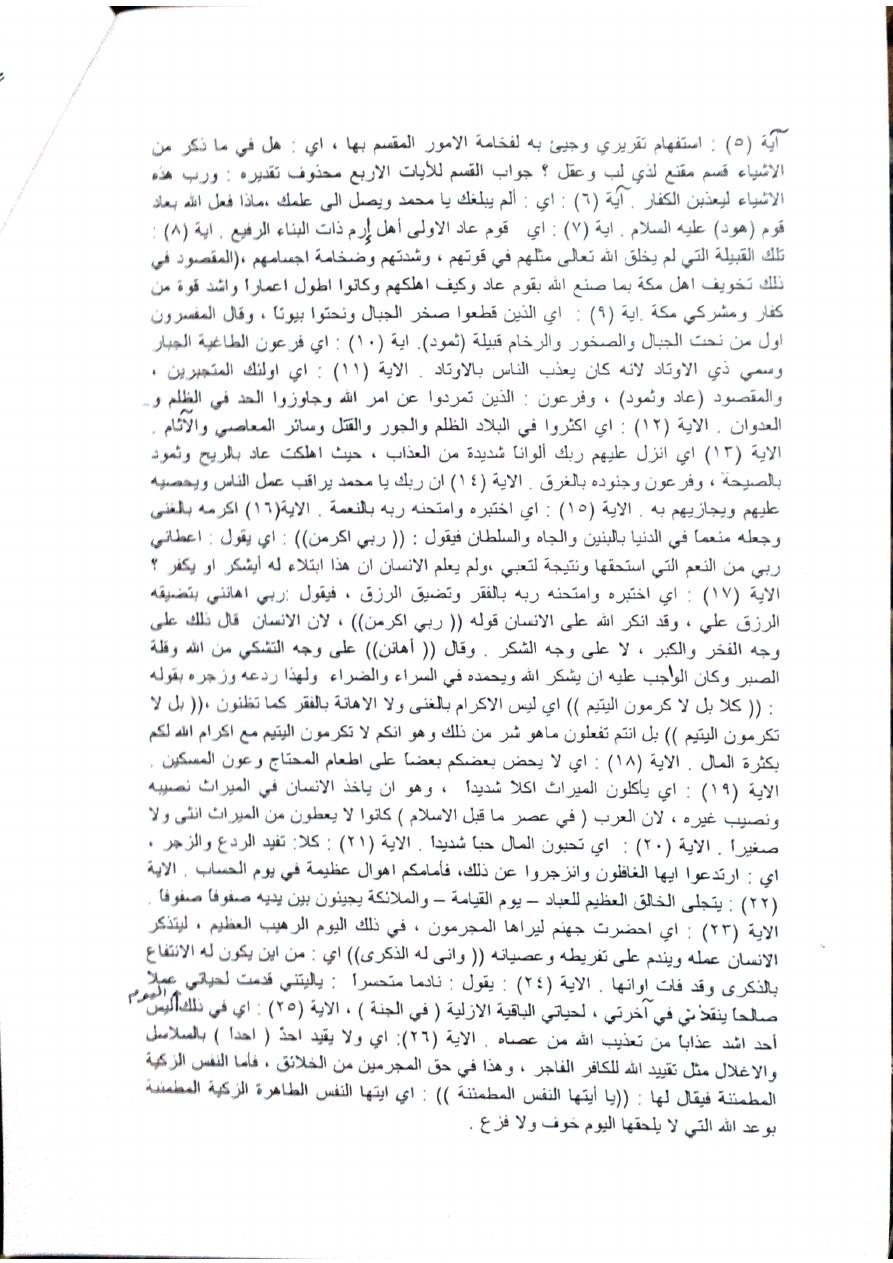 آية (٥) : استفهام تقريري وجيئ به لفخامة الامور المقسم بها ، اي : هل في ما نكر من
الاشياء قسم مقنع لذي لب وعقل ؟ جواب القسم للأيات الاربع محذوف تقديره : ورب هذه
الاشياء ليعذبن الكفار . آية (٦) : اي : ألم يبلغك يا محمد ويصل الى علمك ،ماذا فعل الله بعاد
قوم (هود) عليه السلام . اية (٧) : اي قوم عاد الاولى أهل إرم ذات البناء الرفيع . اية (٨) :
تلك القبيلة التي لم يخلق الله تعالى مثلهم في قوتهم ، وشدتهم وضخامة اجسامهم ،(المقصود في
ذلك تخويف اهل مكة بما صنع الله بقوم عاد وكيف اهلكهم وكانوا اطول اعماراً واشد قوة من
كفار ومشركي مكة .اية (٩) : اي الذين قطعوا صخر الجبال ونحتوا بيوتاً ، وقال المفسرون
اول من نحت الجبال والصخور والرخام قبيلة (ثمود). اية (١٠) : اي فرعون الطاغية الجبار
وسمي ذي الاوتاد لانه كان يعذب الناس بالاوتاد . الاية (١١) : اي اولئك المتجبرين ،
والمقصود (عاد وثمود) ، وفرعون : الذين تمردوا عن امر الله وجاوزوا الحد في الظلم و
العدوان . الاية (١٢) : اي اكثروا في البلاد الظلم والجور والقتل وسائر المعاصي والآثام .
الاية (١٣) اي انزل عليهم ربك ألواناً شديدة من العذاب ، حيث اهلكت عاد بالريح وثمود
بالصيحة ، وفرعون وجنوده بالغرق . الاية (١٤) ان ربك يا محمد يراقب عمل الناس ويحصيه
عليهم ويجازيهم به . الاية (١٥) : اي اختبره وامتحنه ربه بالنعمة . الاية(١٦) اكرمه بالغنى
وجعله منعماً في الدنيا بالبنين والجاه والسلطان فيقول : (( ربي اكرمن)) : اي يقول : اعطاني
ربي من النعم التي استحقها ونتيجة لتعبي ،ولم يعلم الانسان ان هذا ابتلاء له أيشكر او يكفر ؟
الاية (١٧) : اي اختبره وامتحنه ربه بالفقر وتضيق الرزق ، فيقول :ربي اهانني بتضيقه
الرزق علي ، وقد انكر الله على الانسان قوله (( ربي اكرمن)) ، لان الانسان قال ذلك على
وجه الفخر والكبر ، لا على وجه الشكر . وقال (( أهانن)) على وجه التشكي من الله وقلة
الصبر وكان الواجب عليه ان يشكر الله ويحمده في السراء والضراء ولهذا ردعه وزجره بقوله
: (( كلا بل لا كرمون اليتيم )) اي ليس الاكرام بالغنى ولا الاهانة بالفقر كما تظنون ،(( بل لا
تكرمون اليتيم )) بل انتم تفعلون ماهو شر من ذلك وهو انكم لا تكرمون اليتيم مع اكرام الله لكم
بكثرة المال . الاية (١٨) : اي لا يحض بعضكم بعضاً على اطعام المحتاج وعون المسكين .
الاية (١٩) : اي يأكلون الميراث اكلاً شديداً ، وهو ان ياخذ الانسان في الميراث نصيبه
ونصيب غيره ، لان العرب ( في عصر ما قبل الاسلام ) كانوا لا يعطون من الميراث انثى ولا
صغيراً . الاية (٢٠) : اي تحبون المال حباً شديداً . الاية (٢١) : كلا: تفيد الردع والزجر ،
اي : ارتدعوا ايها الغافلون وانزجروا عن ذلك، فأمامكم اهوال عظيمة في يوم الحساب . الاية
(٢٢) : يتجلى الخالق العظيم للعباد – يوم القيامة – والملائكة يجيئون بين يديه صفوفاً صفوفاً .
الاية (٢٣) : اي احضرت جهنم ليراها المجرمون ، في ذلك اليوم الرهيب العظيم ، ليتذكر
الانسان عمله ويندم على تفريطه وعصيانه (( وانى له الذكرى)) اي : من اين يكون له الانتفاع
بالذكرى وقد فات اوانها . الاية (٢٤) : يقول : نادما متحسراً : ياليتني قدمت لحياتي عملا
صالحاً ينقذني في آخرتي ، لحياتي الباقية الازلية ( في الجنة ) ، الاية (٢٥) : اي في ذلك اليوم ليس
أحد اشد عذاباً من تعذيب الله من عصاه . الاية (٢٦): اي ولا يقيد احدٌ ( احداً ) بالسلاسل
والاغلال مثل تقييد الله للكافر الفاجر ، وهذا في حق المجرمين من الخلائق ، فأما النفس الزكية
المطمئنة فيقال لها : ((يا أيتها النفس المطمئنة )) : اي ايتها النفس الطاهرة الزكية المطمئنة
بوعد الله التي لا يلحقها اليوم خوف ولا فزع .